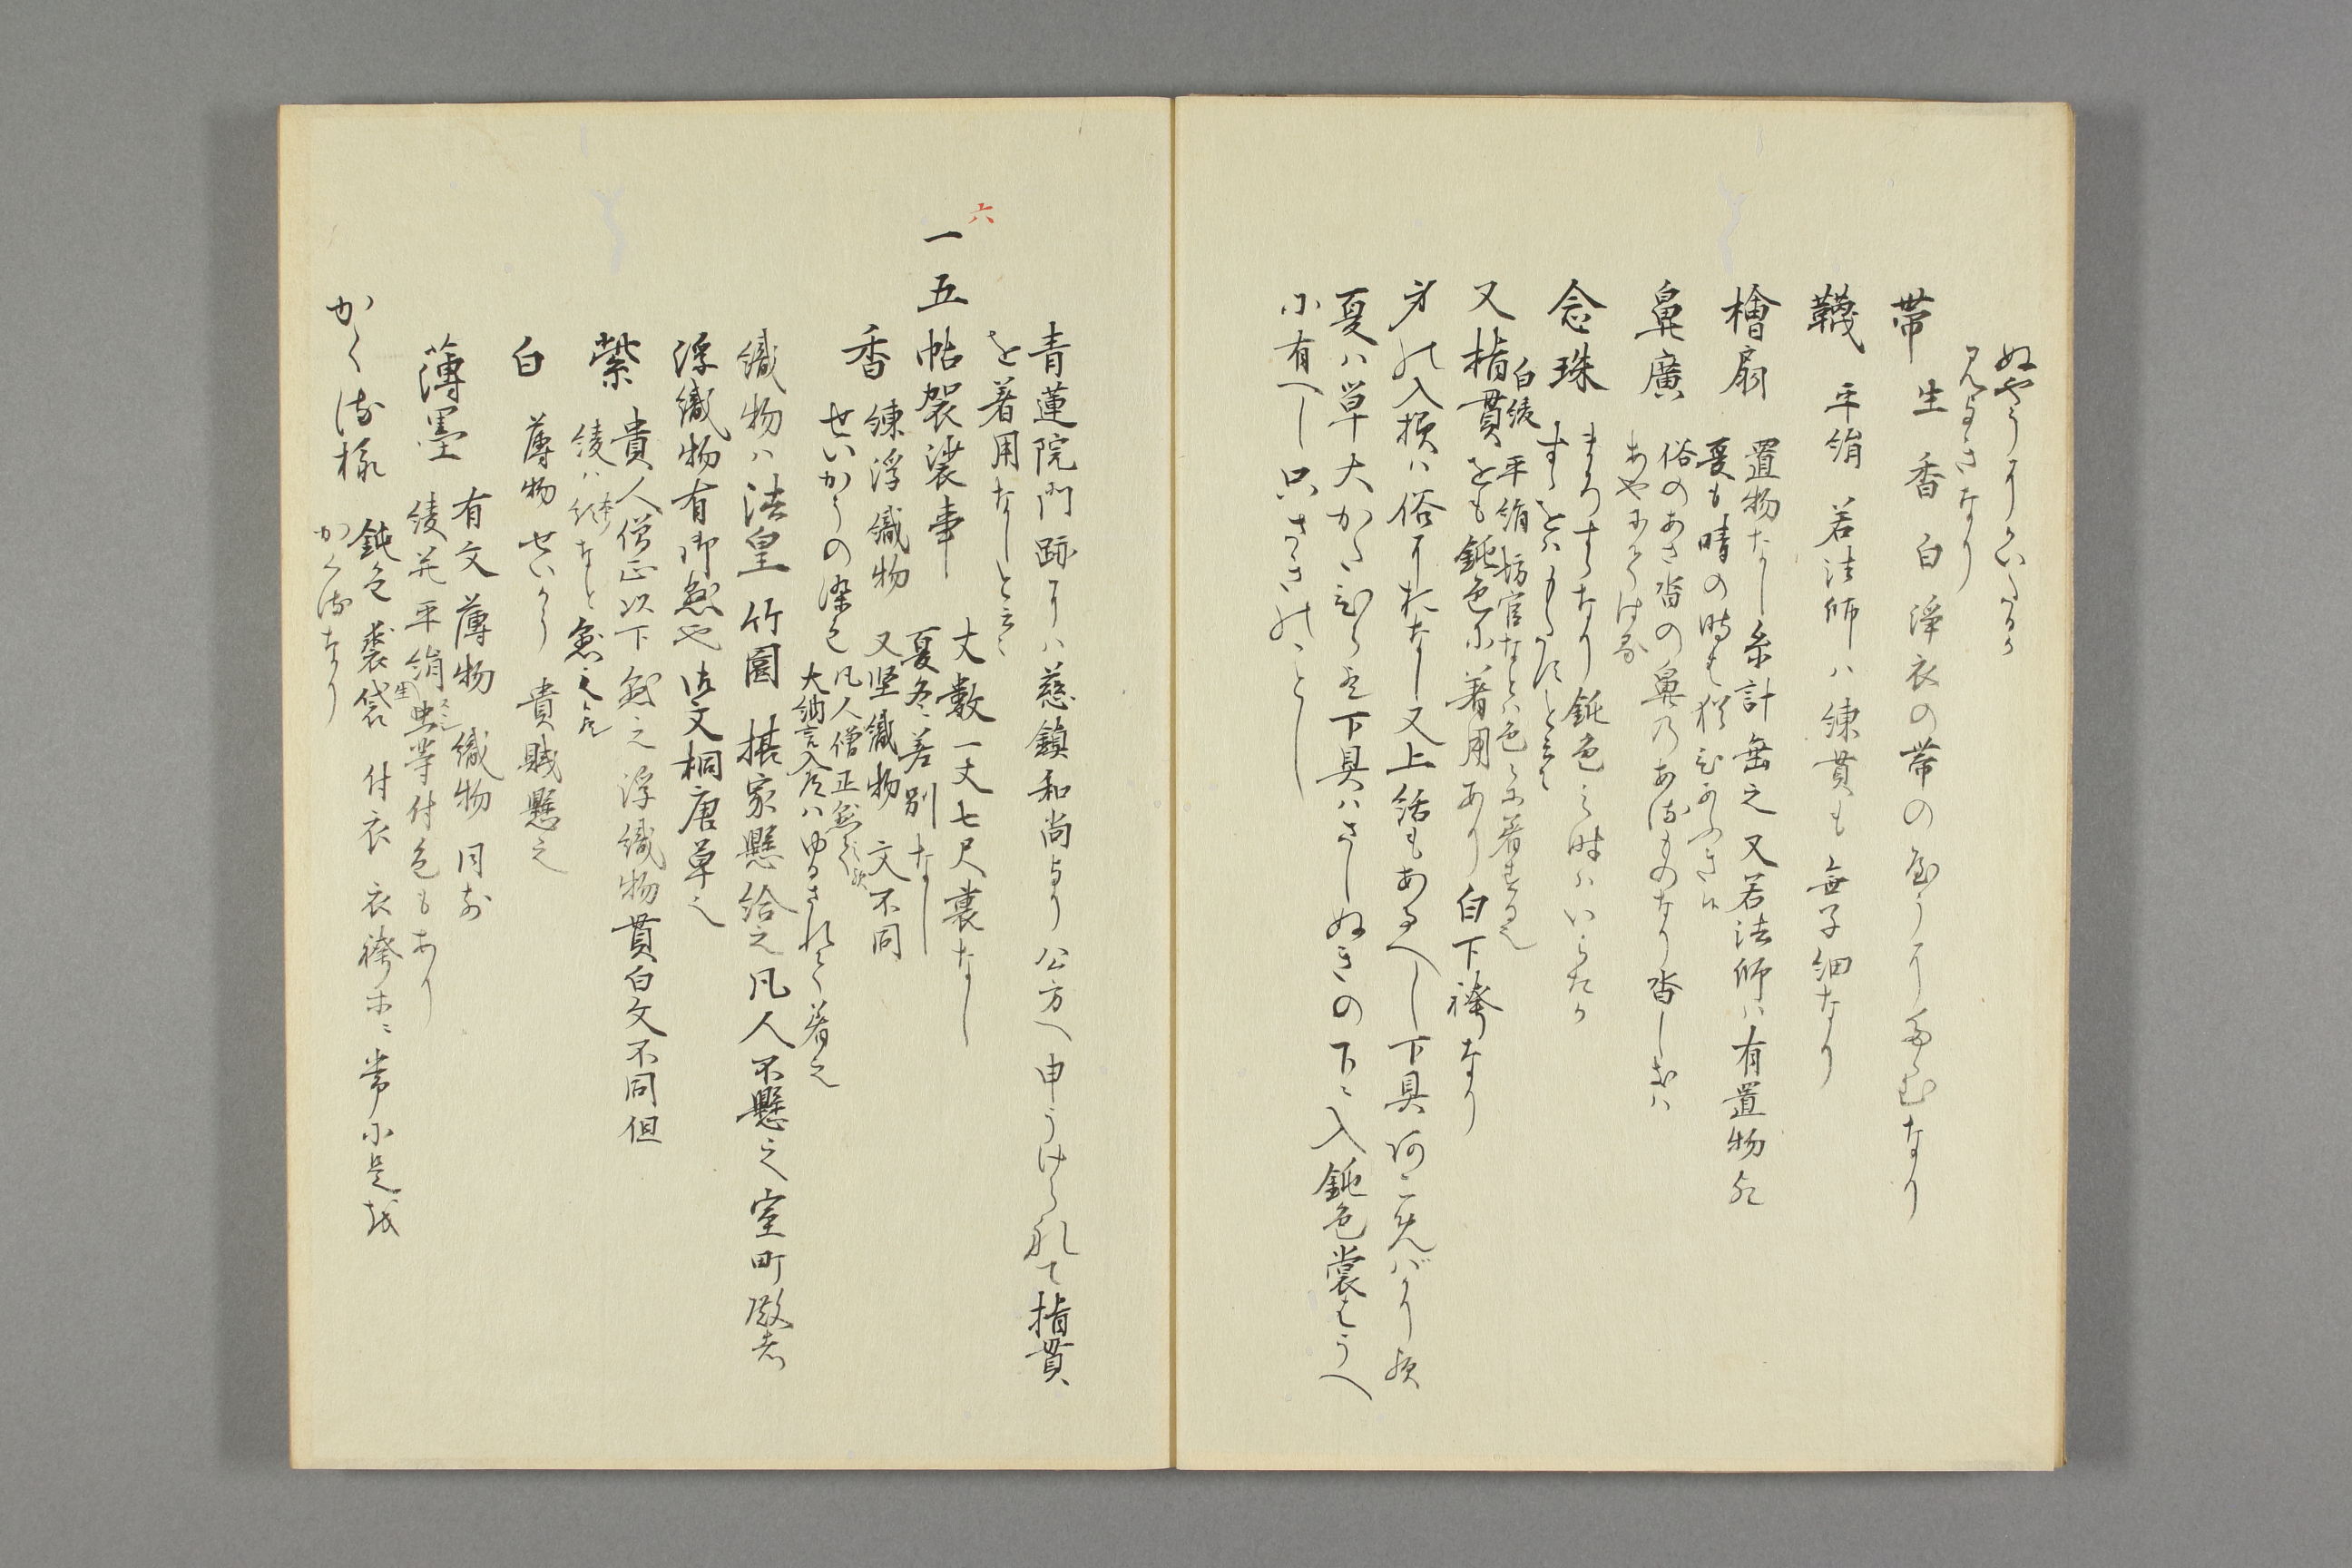 ぬやう
見よきなり
帯 生 香 白 浄衣の帯のやうにたゝむなり
韈 平絹 若法師ハ練貫も無子細なり
檜扇 置物なし糸計垂之又若法師ハ有置物
夏も晴の時も猶ひあふき
鼻廣 俗のあさ沓の鼻乃あるものなり沓しきハ
あやにてはる
念珠 まろすゝなり鈍色之時ハいらたか
すゝをハもたすと云々
白綾 平絹坊官なとハ色々に着する也
又指貫をも鈍色に着用あり白下袴なり
身の入損ハ俗にれなし又上括もあるへし下具
夏ハ単大かたひら也下具ハさしぬきの下ニ入鈍色裳もうへ
に有へし只さきのことし
青蓮院門跡にハ慈鎮和尚より公方へ申うけられて指貫
を着用なしと云々
六
一 五帖袈裟事 丈數一丈七尺裏なし
夏冬差別なし
香 練浮織物 又堅織物 文不同
せいかうの染色 凡人僧正
大納言入道ハゆるされて着之
織物ハ法皇 竹園 摂家懸給之凡人不懸之室町殿
浮織物有御懸也 御文桐唐草也
紫 貴人僧正以下懸之浮織物貫白文不同但
綾ハ なと懸之
白 薄物 せいかう 貴賎懸之
薄墨 有文薄物 織物 同前
綾并平絹 生 等付色もあり
かくる様 鈍色 裘袋 付衣 衣袴ホニ常に是を
かくるなり